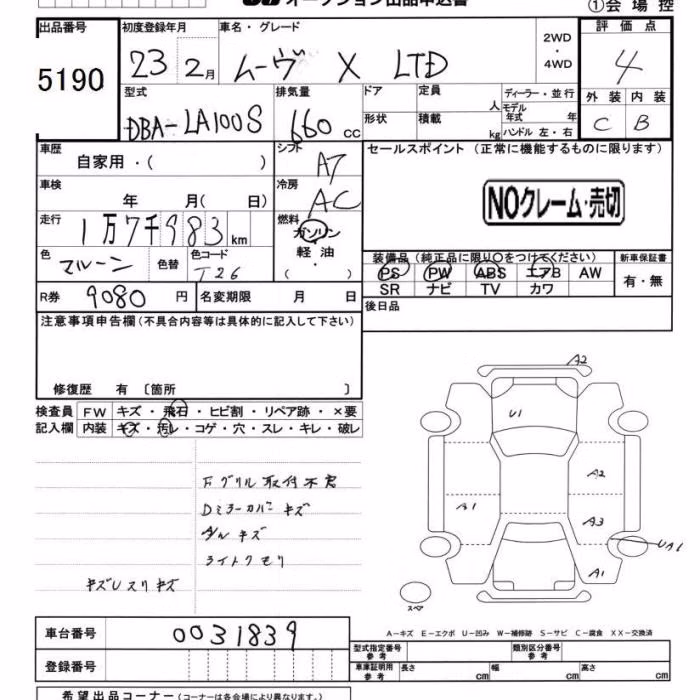 オークション出品申込書
①会場控
出品番号
5190
初度登録年月
23 2月
車名・グレード
ムーヴ X LTD
2WD
・
4WD
評価点
4
外装 内装
C B
型式
DBA-LA100S
排気量
660 cc
ドア
定員
人
形状
積載
kg
ディーラー・並行
モデル
年式 年
ハンドル 左・右
車歴
自家用・( )
シフト
AT
セールスポイント(正常に機能するものに限ります)
NOクレーム・売切
車検
年 月( 日)
冷房
AC
走行
1万7千983km
燃料
ガソリン
軽油
( ・ )
色
マルーン
色替
色コード
T26
装備品(純正品に限り○をつけてください)
PS PW ABS エアB AW
SR ナビ TV カワ
新車保証書
有・無
R券
9080円
名変期限 月 日
後日品
注意事項申告欄(不具合内容等は具体的に記入して下さい)
修復歴 有 〔箇所 〕
検査員 FW キズ・飛石・ヒビ割・リペア跡・×要
記入欄 内装 キズ・汚レ・コゲ・穴・スレ・キレ・破レ
Fグリル取付不良
Dミラーカバー キズ
アルキズ
ライトクモリ
キズUスリキズ
A2
U1
A2
A1
A3
A1
スペア
A-キズ E-エクボ U-凹み W-補修跡 S-サビ C-腐食 XX-交換済
車台番号
0031839
型式指定番号
参考
類別区分番号
参考
登録番号
車庫証明用
参考
長さ cm
幅 cm
高さ cm
希望出品コーナー(コーナーは各会場により異なります。)